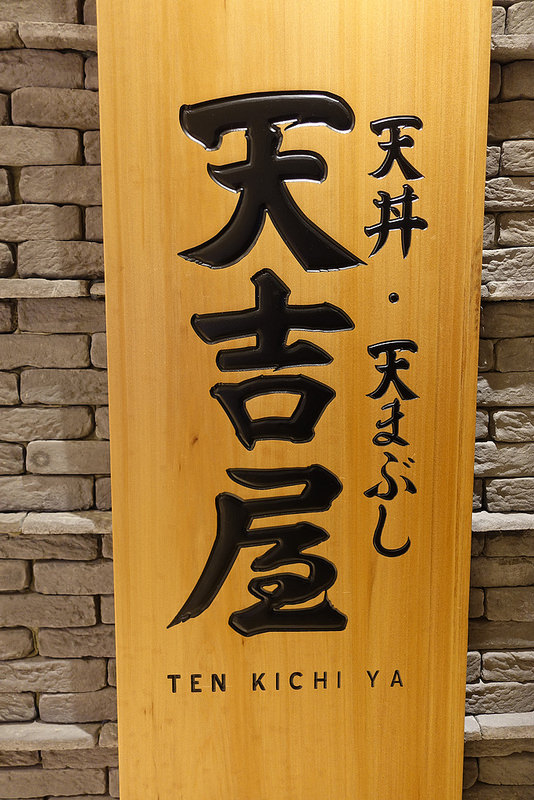 天丼・天まぶし
天吉屋
TEN KICHI YA